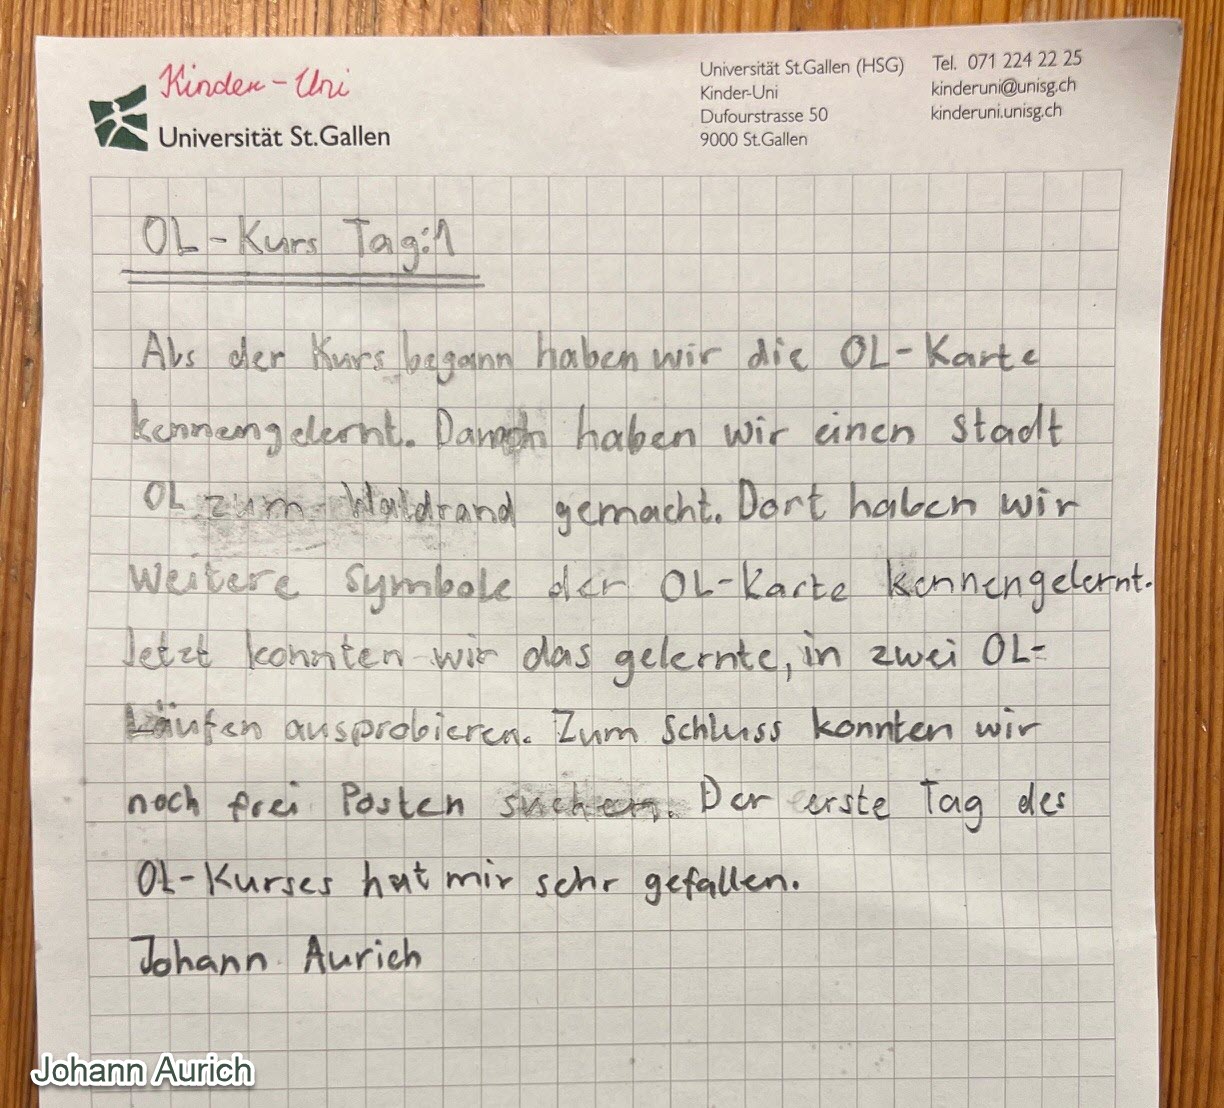 Kinder-Uni
Universität St.Gallen
Universität St.Gallen (HSG)
Kinder-Uni
Dufourstrasse 50
9000 St.Gallen
Tel. 071 224 22 25
kinderuni@unisg.ch
kinderuni.unisg.ch
OL-Kurs Tag:1
Als der Kurs begann haben wir die OL-Karte
kennengelernt. Danach haben wir einen Stadt
OL zum Waldrand gemacht. Dort haben wir
weitere Symbole der OL-Karte kennengelernt.
Jetzt konnten wir das gelernte, in zwei OL-
Läufen ausprobieren. Zum Schluss konnten wir
noch frei Posten suchen. Der erste Tag des
OL-Kurses hat mir sehr gefallen.
Johann Aurich
Johann Aurich